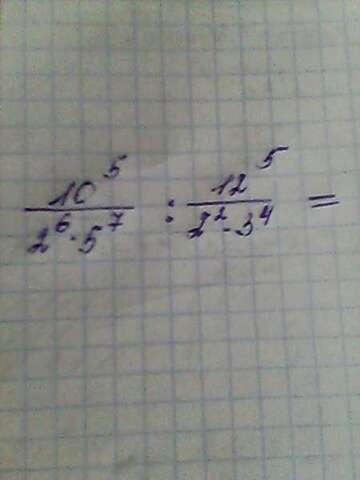 10⁵ / 2⁶·5⁷ : 12⁵ / 2²·3⁴ =